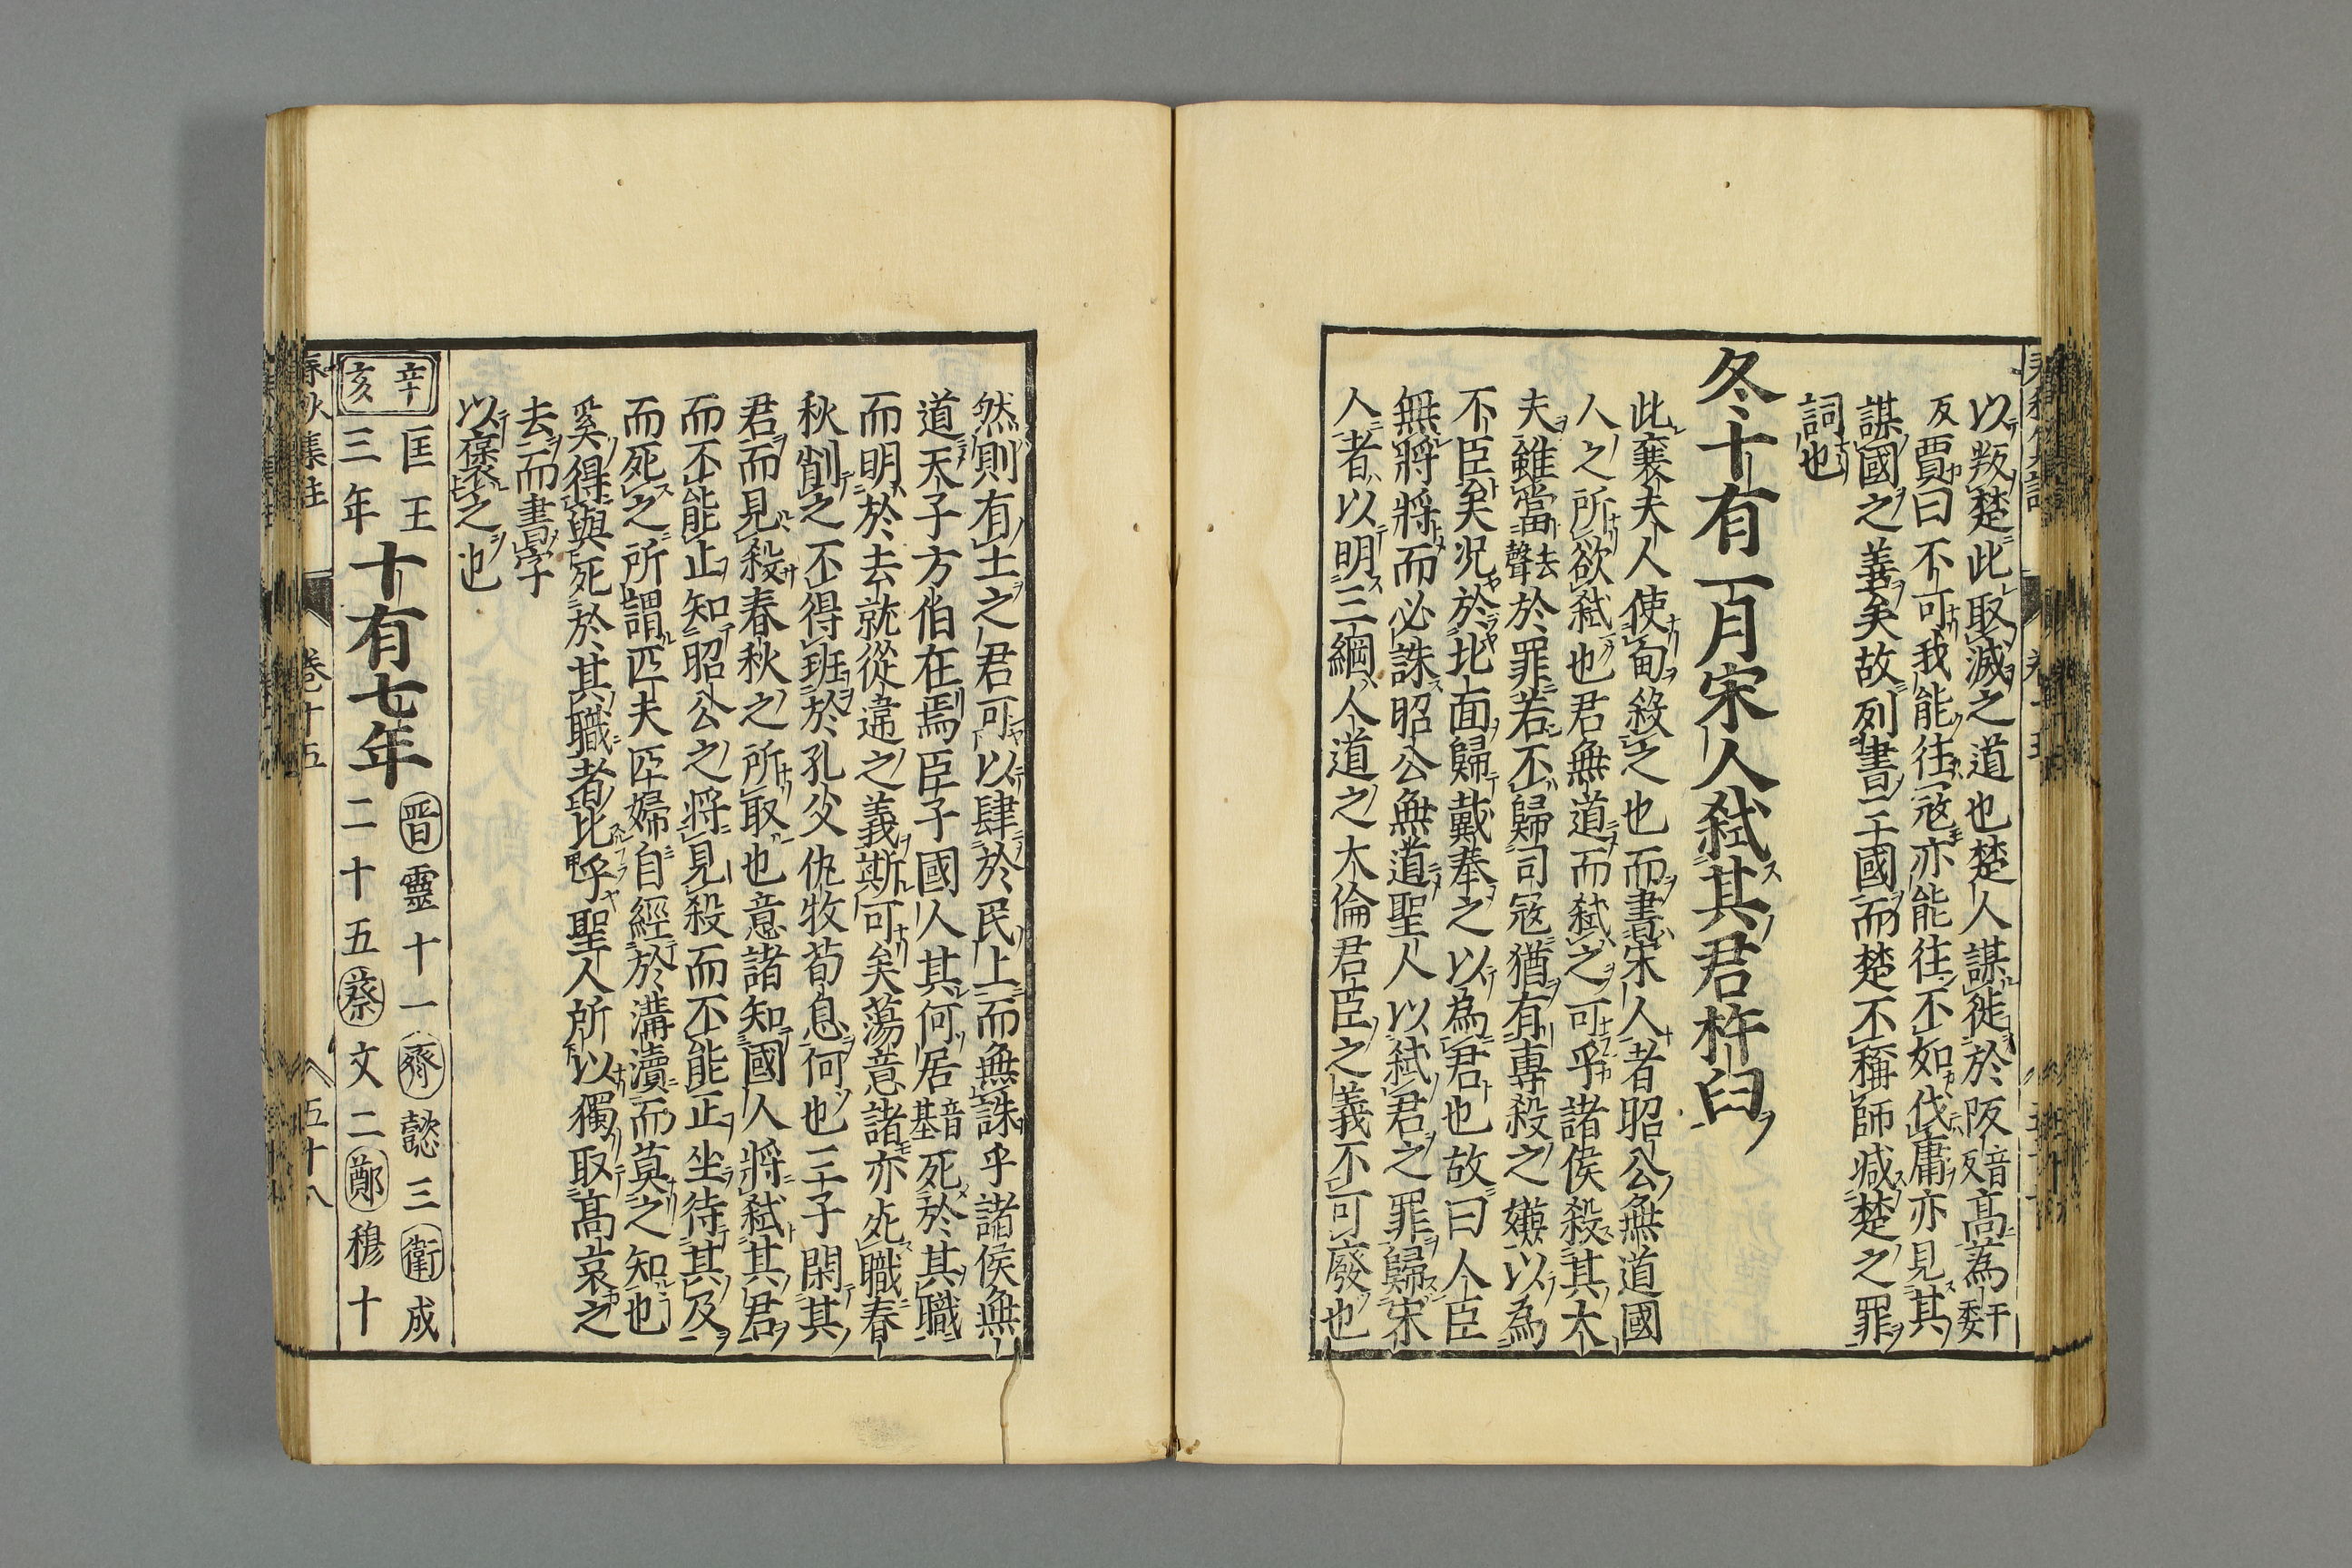 以叛楚此取滅之道也楚人謀徙於阪音反高蒍于委
反賈曰不可我能往宼亦能往不如伐庸亦見其
謀國之善矣故列書三國而楚不稱師滅楚之罪
詞也
冬十有一月宋人弑其君杵臼
此襄夫人使甸殺之也而書宋人者昭公無道國
人之所欲弑也君無道而弑之可乎諸侯殺其大
夫雖當去聲於罪若不歸司宼猶有專殺之嫌以為
不臣矣况於北面歸戴奉之以為君也故曰人臣
無將將而必誅昭公無道聖人以弑君之罪歸宋
人者以明三綱人道之大倫君臣之義不可廢也
然則有土之君可以肆於民上而無誅乎諸侯無
道天子方伯在焉臣子國人其何居音基死於其職
而明於去就從違之義斯可矣蕩意諸亦死職春
秋削之不得班於孔父仇牧荀息何也三子閑其
君而見殺春秋之所取也意諸知國人將弑其君
而不能止知昭公之將見殺而不能正坐待其及
而死之所謂匹夫匹婦自經於溝瀆而莫之知也
奚得與死於其職者比乎聖人所以獨取高哀之
去而書字
以褒之也
辛亥 匡王三年 十有七年 晋靈十一齊懿三衛成二十五蔡文二鄭穆十
春秋集註 卷十五 五十八